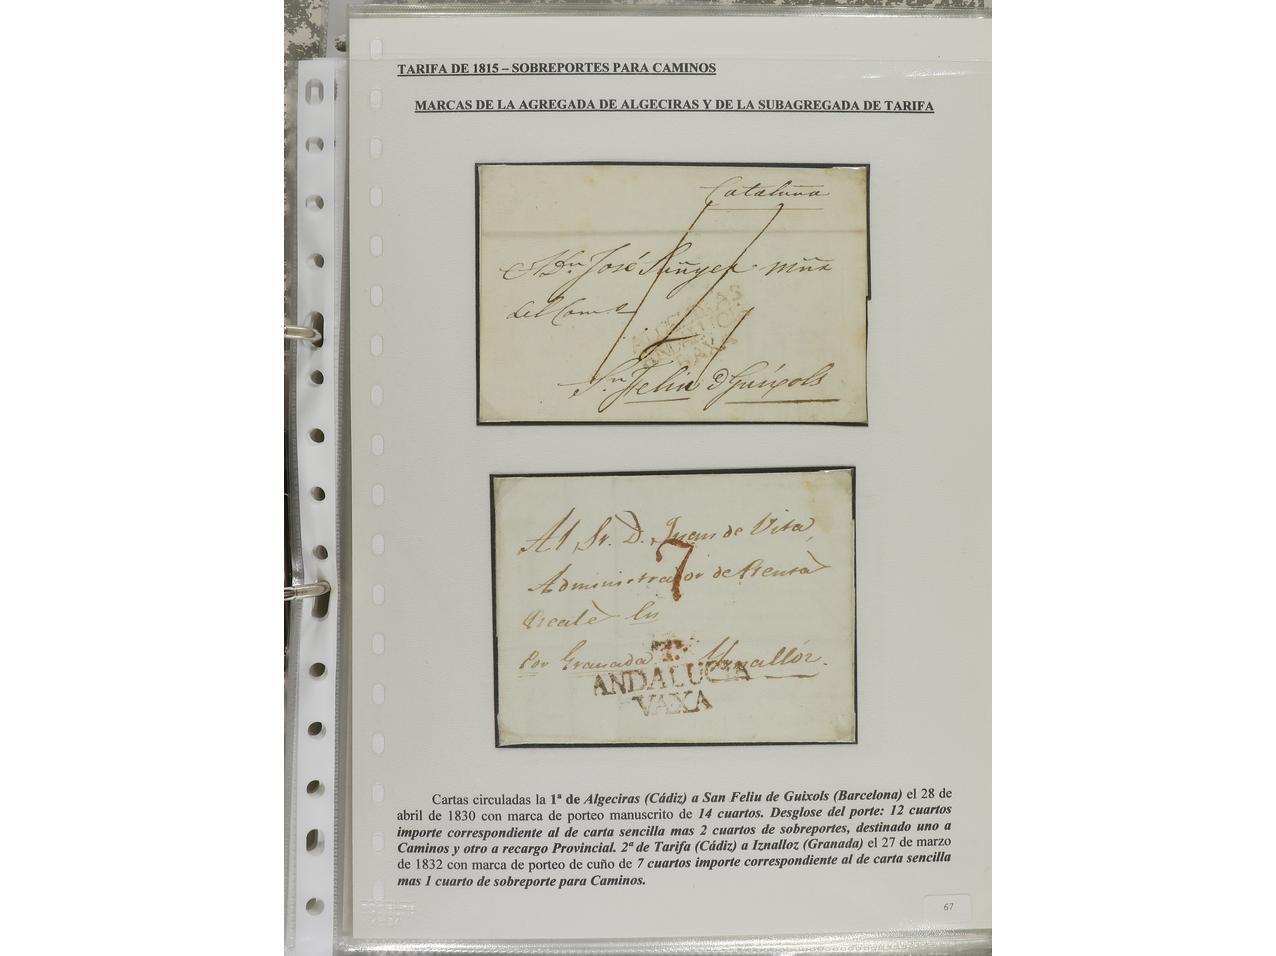 TARIFA DE 1815 – SOBREPORTES PARA CAMINOS
MARCAS DE LA AGREGADA DE ALGECIRAS Y DE LA SUBAGREGADA DE TARIFA
Cataluña
A Dn José
del Com.o
ALGECIRAS
ANDALUCIA
BAXA
Sn Feliu d Guixols
Al Sr. D. Juan de Vita
7
Administrador de Rentas
Reales En
Por Granada Yznallóz.
T.
ANDALUCIA
VAXA
Cartas circuladas la 1ª de Algeciras (Cádiz) a San Feliu de Guixols (Barcelona) el 28 de
abril de 1830 con marca de porteo manuscrito de 14 cuartos. Desglose del porte: 12 cuartos
importe correspondiente al de carta sencilla mas 2 cuartos de sobreportes, destinado uno a
Caminos y otro a recargo Provincial. 2ª de Tarifa (Cádiz) a Iznalloz (Granada) el 27 de marzo
de 1832 con marca de porteo de cuño de 7 cuartos importe correspondiente al de carta sencilla
mas 1 cuarto de sobreporte para Caminos.
67